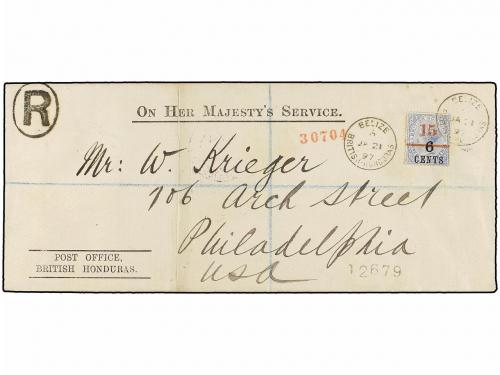 R
ON HER MAJESTY'S SERVICE.
30704
BELIZE
JA 21
97
BRITISH HONDURAS
15
6
CENTS
BELIZE
JA 21
97
Mr: W. Krieger
706 Arch Street
Philadelphia
USA
12679
POST OFFICE,
BRITISH HONDURAS.